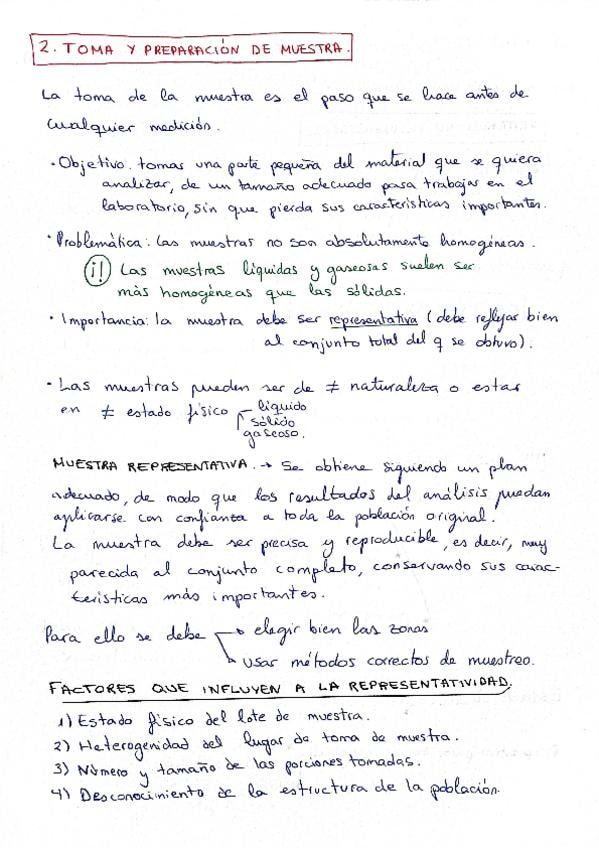 2. TOMA Y PREPARACIÓN DE MUESTRA.
La toma de la muestra es el paso que se hace antes de
cualquier medición.
· Objetivo: tomas una parte pequeña del material que se quiera
analizar, de un tamaño adecuado para trabajar en el
laboratorio, sin que pierda sus características importantes.
· Problemática: Las muestras no son absolutamente homogéneas.
¡! Las muestras líquidas y gaseosas suelen ser
más homogéneas que las sólidas.
· Importancia: la muestra debe ser representativa (debe reflejar bien
al conjunto total del q se obtuvo).
· Las muestras pueden ser de ≠ naturaleza o estar
en ≠ estado físico líquido
sólido
gaseoso.
MUESTRA REPRESENTATIVA. → Se obtiene siguiendo un plan
adecuado, de modo que los resultados del análisis puedan
aplicarse con confianza a toda la población original.
La muestra debe ser precisa y reproducible, es decir, muy
parecida al conjunto completo, conservando sus carac-
terísticas más importantes.
Para ello se debe → elegir bien las zonas
→ usar métodos correctos de muestreo.
FACTORES QUE INFLUYEN A LA REPRESENTATIVIDAD.
1) Estado físico del lote de muestra.
2) Heterogenidad del lugar de toma de muestra.
3) Número y tamaño de las porciones tomadas.
4) Desconocimiento de la estructura de la población.